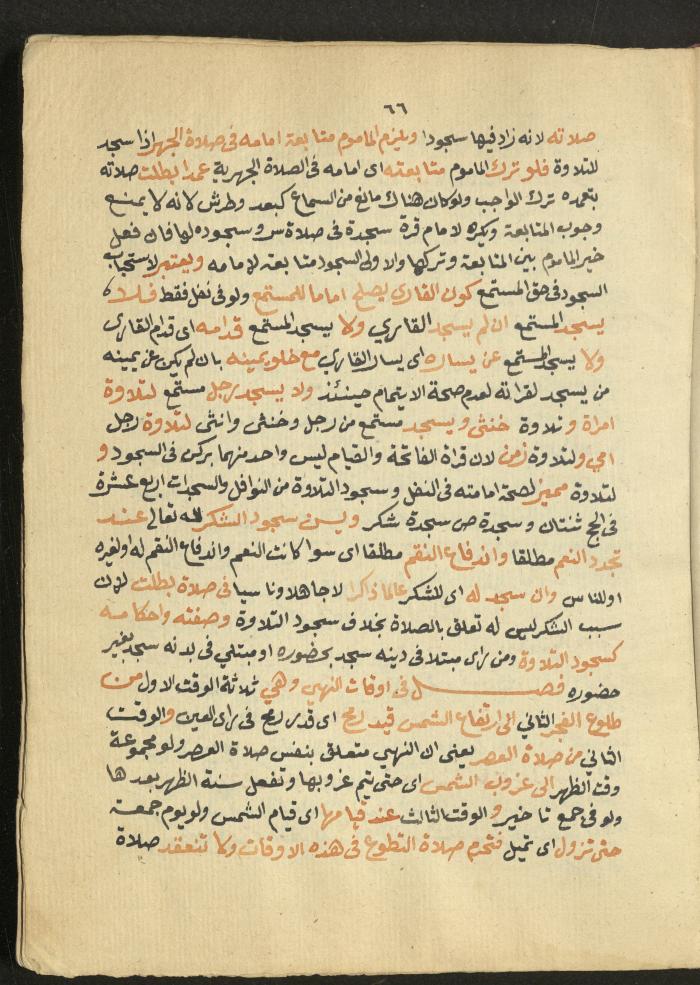 ٦٦
صلاته لانه زاد فيها سجودا ويلزم الماموم متابعة امامه في صلاة الجهر اذا سجد
للتلاوة فلو ترك الماموم متابعته اى امامه في الصلاة الجهرية عمدا بطلت صلاته
بتعمده ترك الواجب ولو كان هناك مانع من السماع كبعد وطرش لانه لا يمنع
وجوب المتابعة ويكره لامام قرة سجدة في صلاة سر وسجوده لها فان فعل
خير الماموم بين المتابعة وتركها والاولى السجود متابعة للامامه ويعتبر لاستحباب
السجود في حق المستمع كون القارى يصلح اماما للمستمع ولو في نفل فقط فلا
يسجد المستمع ان لم يسجد القاري ولا يسجد المستمع قدامه اى قدام القارى
ولا يسجد المستمع عن يساره اى يسار القاري مع خلو يمينه بان لم يكن عن يمينه
من يسجد لقراته لعدم صحة الايتمام حينئذ ولا يسجد رجل مستمع لتلاوة
امراة وتلاوة خنثى ويسجد مستمع من رجل وخنثى وانثى لتلاوة رجل
امي ولتلاوة زمن لان قراة الفاتحة والقيام ليس واحد منهما بركن في السجود و
لتلاوة مميز لصحة امامته في النفل وسجود التلاوة من النوافل والسجدات اربع عشرة
في الحج ثنتان وسجدة ص سجدة شكر ويسن سجود الشكر لله تعالى عند
تجدد النعم مطلقا واندفاع النقم مطلقا اى سوا كانت النعم واندفاع النقم له او لغيره
او للناس وان سجد له اى للشكر عالما ذاكرا لا جاهلا وناسيا في صلاة بطلت لان
سبب الشكر ليس له تعلق بالصلاة بخلاف سجود التلاوة وصفته واحكامه
كسجود التلاوة ومن راى مبتلا في دينه سجد بحضوره او مبتلي في بدنه سجد بغير
حضوره فصل في اوقات النهي وهي ثلاثة الوقت الاول من
طلوع الفجر الثاني الى ارتفاع الشمس قيد رمح اى قدر رمح في راى العين والوقت
الثاني من صلاة العصر يعنى ان النهي متعلق بنفس صلاة العصر ولو مجموعة
وقت الظهر الى غروب الشمس اى حتى يتم غروبها وتفعل سنة الظهر بعدها
ولو في جمع تاخير والوقت الثالث عند قيامها اى قيام الشمس ولو يوم جمعة
حتى تزول اى تميل فتحرم صلاة التطوع في هذه الاوقات ولا تنعقد صلاة